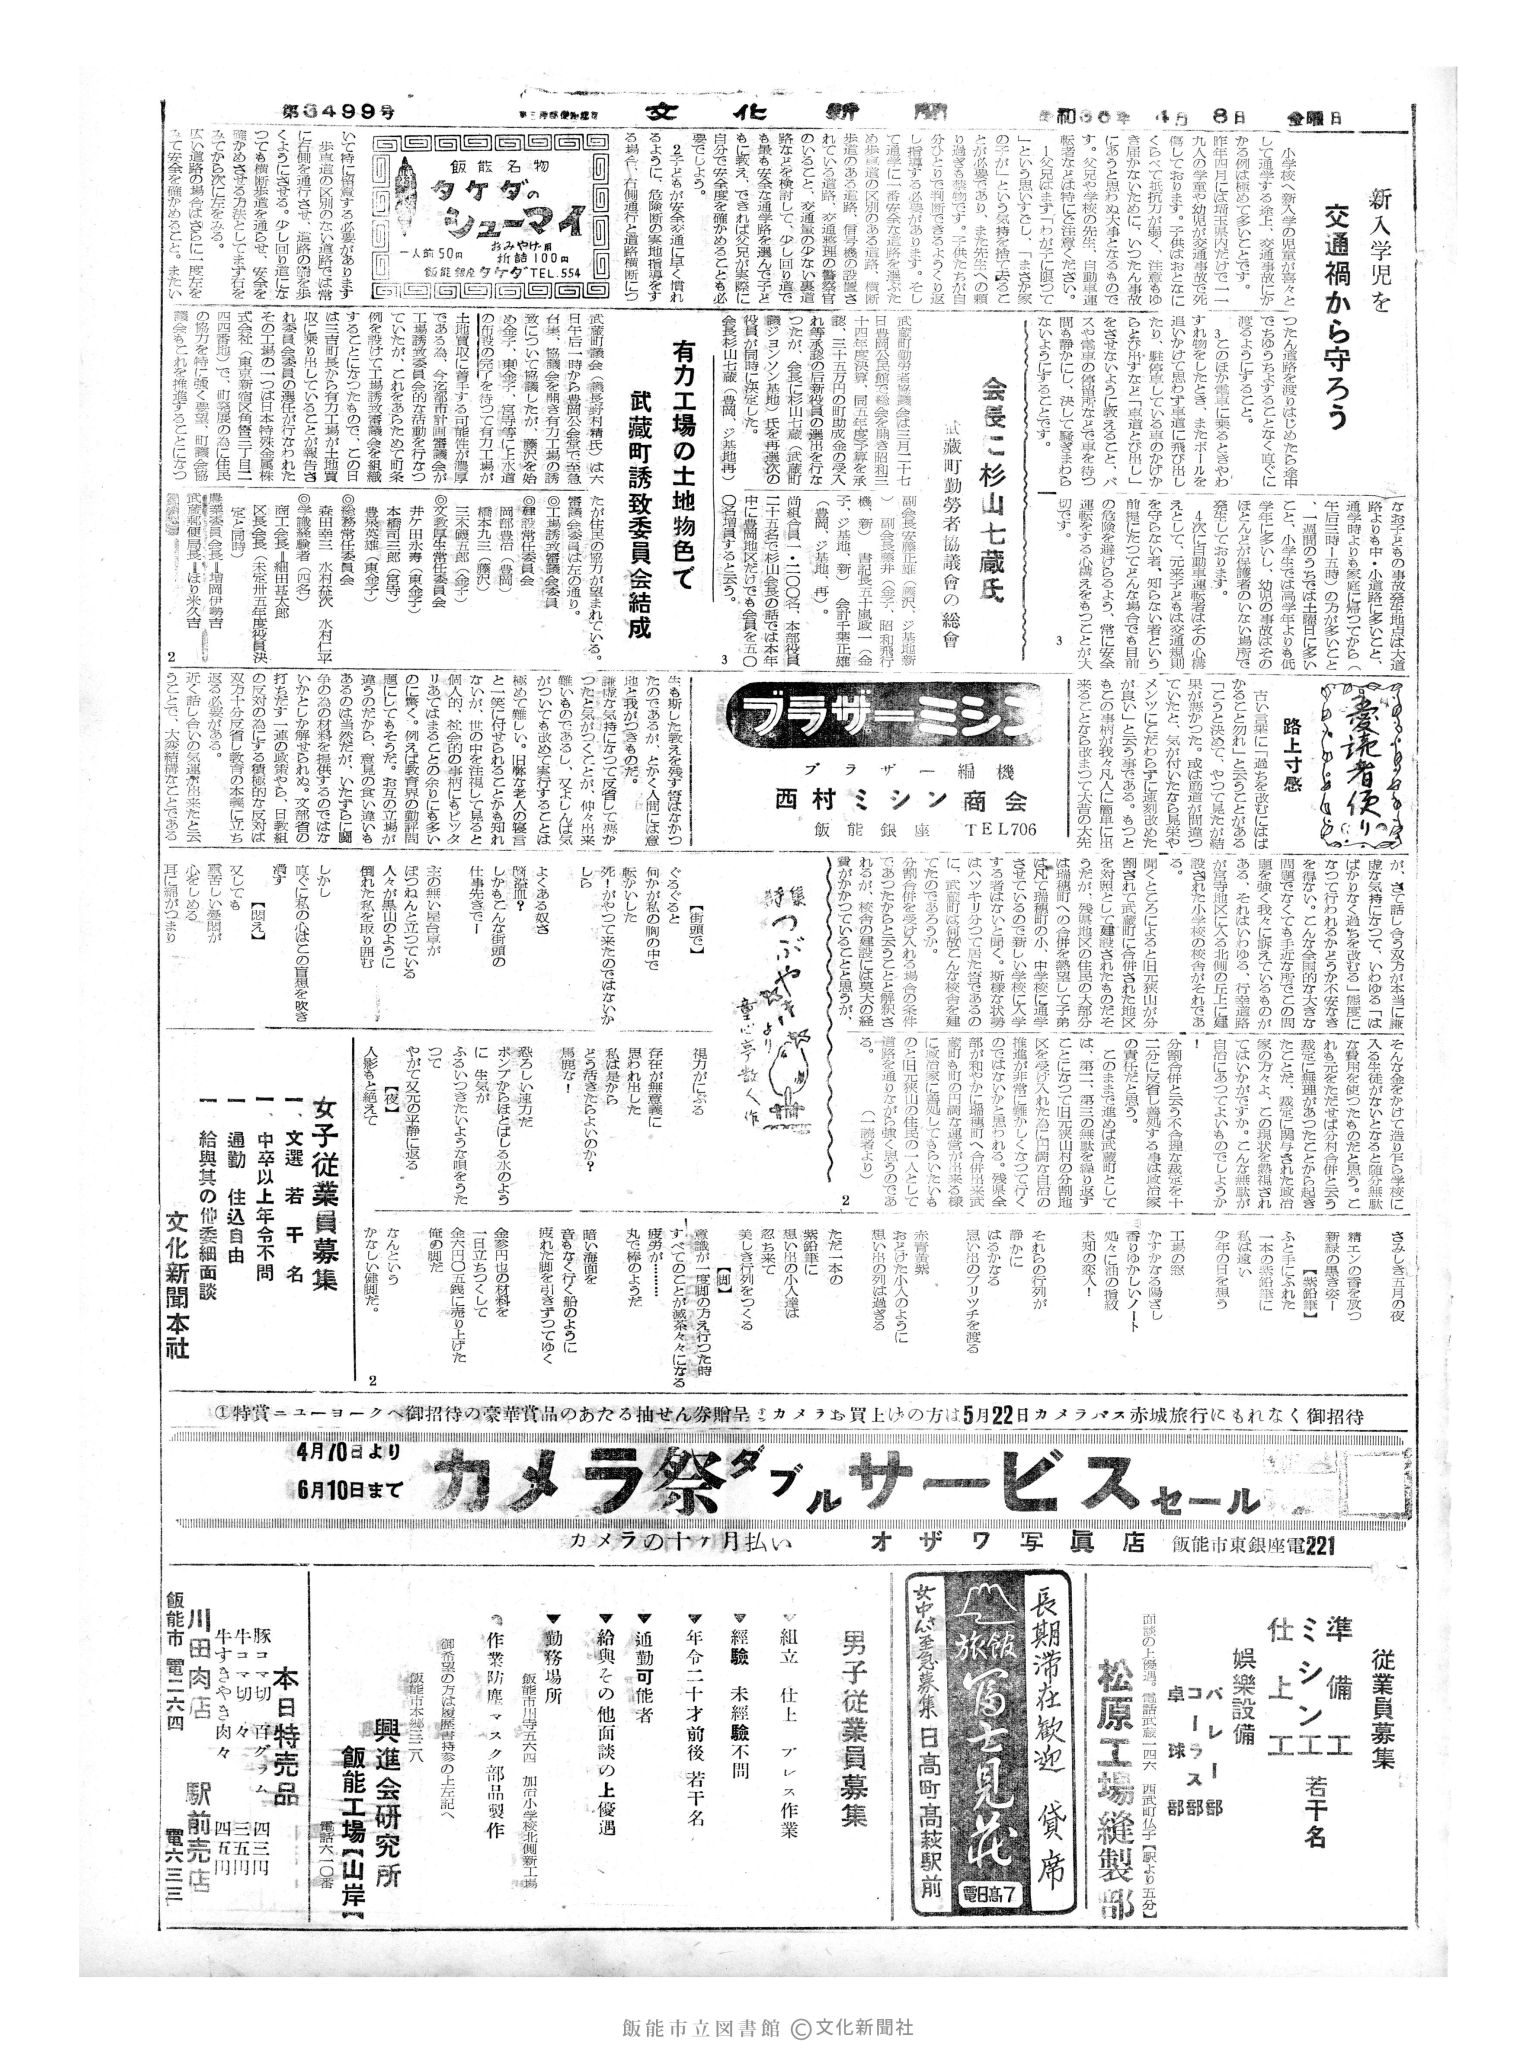 第3499号
文化新聞
4月8日
金曜日
新入学児を
交通禍から守ろう
小学校へ新入学の児童が喜々と
して通学する途上、交通事故にか
かる例は極めて多いことです。
昨年四月には埼玉県内だけで一一
九人の学童や幼児が交通事故で死
傷しております。子供はおとなに
くらべて抵抗力が弱く、注意もゆ
き届かないために、いつたん事故
にあうと思わぬ大事となるもので
す。父兄や学校の先生、自動車運
転者などは特にご注意ください。
1父兄はまず「わが子に限つて
」という思いすごし、「まさか家
の子が」という気持を捨て去るこ
とが必要であり、また先生への頼
り過ぎも禁物です。子供たちが自
分ひとりで判断できるようくり返
し指導する必要があります。そし
て通学に一番安全な道路を選ぶた
め歩車道の区別のある道路、横断
歩道のある道路、信号機の設置さ
れている道路、交通整理の警察官
のいること、交通量の少ない裏道
路などを検討して、少し回り道で
も最も安全な通学路を選んで子ど
もに教え、できれば父兄が実際に
自分で安全度を確かめることも必
要でしよう。
2子どもが安全交通に早く慣れ
るように、危険断の実地指導をす
る場合、右側通行と道路横断につ
飯能名物
タケダの
シューマイ
一人前50円
おみやげ用
折詰100円
飯能銀座 タケダ TEL.554
いて特に留意する必要があります
歩車道の区別のない道路では常
に右側を通行させ、道路の端を歩
くようにさせる。少し回り道にな
つても横断歩道を通らせ、安全を
確かめさせる方法としてまず右を
みてから次に左をみる。
広い道路の場合はさらに一度左を
みて安全を確かめること。またい
つたん道路を渡りはじめたら途中
でちゆうちよすることなく直ぐに
渡るようにすること。
3このほか電車に乗るときやわ
すれ物をしたとき、またボールを
追いかけて思わず車道に飛び出し
たり、駐停車している車のかげか
らとび出すなど「車道とび出し」
をさせないように教えること、バ
スや電車の停留所などで車を待つ
間も静かにし、決して騒ぎまわら
ないようにすることです。
なお子どもの事故発生地点は大道
路よりも中・小道路に多いこと、
通学時よりも家庭に帰つてから(
午后三時―五時)の方が多いこと
、一週間のうちでは土曜日に多い
こと、小学生では高学年よりも低
学年に多いし、幼児の事故はその
ほとんどが保護者のいない場所で
発生しております。
4次に自動車運転者はその心構
えとして、元来子どもは交通規則
を守らない者、知らない者という
前提にたつてどんな場合でも目前
の危険を避けらるよう、常に安全
運転をする心構えをもつことが大
切です。
3
会長に杉山七蔵氏
武蔵町勤労者協議会の総会
武蔵町勤労者協議会は三月二十七
日豊岡公民館で総会を開き昭和三
十四年度決算、同五年度予算を承
認、三十五万円の町助成金の受入
れ等承認の后新役員の選出を行な
つたが、会長に杉山七蔵(武蔵町
議ジヨンソン基地)氏を再選次の
役員が同時に決定した。
会長杉山七蔵(豊岡、ジ基地再)
副会長安藤正雄(藤沢、ジ基地新
) 副会長藤井(金子、昭和飛行
機、新) 書記長五十嵐政一(金
子、ジ基地、新) 会計千葉正雄
(豊岡、ジ基地、再)。
尚組合員一・二〇〇名、本部役員
二十五名で杉山会長の話では本年
中に豊岡地区だけでも会員を五〇
〇名増員すると云う。
3
有力工場の土地物色で
武蔵町誘致委員会結成
武蔵町議会(議長野村精氏)は六
日午后一時から豊岡公会堂で至急
召集、協議会を開き有力工場の誘
致について協議したが、藤沢を始
め金子、東金子、宮寺等に上水道
の布設の完了を待つて有力工場が
土地買収に着手する可能性が濃厚
である為、今迄都市計画審議会が
工場誘致委員会的な活動を行なつ
ていたが、これをあらためて町条
例を設けて工場誘致審議会を組織
することになつたもので、この日
は三吉町長から有力工場が土地買
収に乗り出していることが報告さ
れ委員会委員の選任が行なわれた
その工場の一つは日本特殊金属株
式会社(東京新宿区角筈三丁目二
四四番地)で、町発展の為に住民
の協力を特に強く要望、町議会協
議会もこれを推進することになつ
たが住民の協力が望まれている。
審議会委員は左の通り。
◎工場誘致審議会委員
◎建設常任委員会
岡部豊治(豊岡)
橋本九三一(藤沢)
三木磯五郎(金子)
◎文教厚生常任委員会
井ケ田永寿(東金子)
本橋司三郎(宮寺)
豊泉英雄(東金子)
◎総務常任委員会
森田幸三 水村莚次 水村仁平
◎学識経験者(四名)
商工会長=細田甚太郎
区長会長(未定卅五年度役員決
定と同時)
農業委員会長=増岡伊勢吉
武蔵郵便局長=ほり米久吉
2
愛読者便り
路上寸感
古い言葉に「過ちを改むにはば
かること勿れ」と云うことがある
「こうと決めて、やつて見たが結
果が悪かつた。或は筋道が間違つ
ていたと、気が付いたなら見栄や
メンツにこだわらずに速刻改めた
が良い」と云う事である。もつと
もこの事柄が我々凡人に簡単に出
来ることなら改まつて大昔の大先
ブラザーミシン
ブラザー編機
西村ミシン商会
飯能銀座 TEL706
生も斯した教えを残す筈はなかつ
たのであるが、とかく人間には意
地と我がつきものだ。
謙虚な気持になつて反省して悪か
つたと気がつくことが、仲々出来
難いものであるし、又よしんば気
がついても改めて実行することは
極めて難しい。旧弊な老人の寝言
と一笑に付せられるとかも知れ
ないが、世の中を注視して見ると
個人的、社会的の事柄にもピツタ
リあてはまることの余りにも多い
のに驚く。例えば教育界の勤評問
題にしてもそうだ。お互の立場が
違うのだから、意見の食い違いも
あるのは当然だが、いたずらに闘
争の為の材料を提供するのではな
いかとしか解せられぬ。文部省の
打ちだす一連の政策やら、日教組
の反対の為にする積極的な反対は
双方十分反省し教育の本義に立ち
返る必要がある。
近く話し合いの気運が出来たと云
うことで、大変結構なことである
が、さて話し合う双方が本当に謙
虚な気持になつて、いわゆる「は
ばかりなく過ちを改むる」態度に
なつて行われるかどうか不安なき
を得ない。こんな全国的な大きな
問題でなくても手近な所でこの間
題を強く我々に訴えているものが
ある、それはいわゆる、行幸道路
が宮寺地区に入る北側の丘上に建
設された小学校の校舎がそれであ
る。
聞くところによると旧元狭山が分
割されて武蔵町に合併された地区
を対照として建設されたものだそ
うだが、残県地区の住民の大部分
は瑞穂町への合併を熱望して子弟
は凡て瑞穂町の小、中学校に通学
させているので新しい学校に入学
する者はないと聞く。斯様な状勢
はハツキリ分つて居た筈であるの
に、武蔵町は何故こんな校舎を建
てたのであろうか。
分割合併を受け入れる場合の条件
であつたからと云うことと解釈さ
れるが、校舎の建設には莫大の経
費がかかつていることと思うが、
そんな金をかけて造り乍ら学校に
入る生徒がないとなると随分無駄
な費用を使つたものだと思う。こ
れも元をただせば分村合併と云う
裁定に無理があつたことから起き
たことだ、裁定に関与された政治
家の方々よ、この現状を熟視され
てはいかがですか。こんな無駄が
自治にあつてよいものでしようか
!
分割合併と云う不合理な裁定を十
二分に反省し善処する事は政治家
の責任だと思う。
このままで進めば武蔵町として
は、第二、第三の無駄を繰り返す
ことになつて旧元狭山村の分割地
区を受け入れた為に円満な自治の
推進が非常に難かしくなつて行く
のではないかと思われる。残県全
部が和やかに瑞穂町へ合併出来武
蔵町も町の円満な運営が出来る様
に政治家に善処してもらいたいも
のと旧元狭山の住民の一人として
道路を通りながら強く思うのであ
る。 (一読者より)
2
詩集
つぶやき
より
童心亭散人作
【街頭で】
ぐるぐると
何かが私の胸の中で
転がいした
死!がやつて来たのではないか
しら
よくある奴さ
脳溢血?
しかもこんな街頭の
仕事先きで―
主の無い屋台車が
ぽつねんと立つている
人々が黒山のように
倒れた私を取り囲む
しかし
直ぐに私の心はこの盲想を吹き
潰す
【悶え】
又しても
重苦しい憂悶が
心をしめる
耳に綿がつまり
視力がにぶる
存在が無意義に
思われ出した
私は是から
どう活きたらよいのか?
馬鹿な!
恐ろしい速力だ
ポンプからほとばしる水のよう
に 生気が
ふるいつきたいような唄をうた
つて
やがて又元の平静に返る
【夜】
人影もと絶えて
さみしき五月の夜
精エンの香を放つ
新緑の黒き姿―
【紫鉛筆】
ふと手にふれた
一本の紫鉛筆に
私は遠い
少年の日を想う
工場の窓
かすかなる陽ざし
香りゆかしいノート
処々に油の指紋
未知の恋人!
それらの行列が
静かに
はるかなる
思い出のブリツチを渡る
赤青黄紫
おとけた小人のように
想い出の列は過ぎる
ただ一本の
紫鉛筆に
想い出の小人達は
忍ち来て
美しき行列をつくる
【脚】
意識が一度脚の方え行つた時
すべてのことが滅茶々々になる
疲労が………
丸で棒のようだ
暗い海面を
音もなく行く船のように
疲れた脚を引きずつてゆく
金参円也の材料を
一日立ちつくして
金六円〇五銭に売り上げた
俺の脚だ
なんという
かなしい健脚だ。
2
女子従業員募集
一、文選若干名
一、中卒以上年令不問
一 通勤 住込自由
一 給与其の他委細面談
文化新聞本社
①特賞ニューヨークへ御招待の豪華賞品のあたる抽せん券贈呈②カメラお買上げの方は5月22日カメラバス赤城旅行にもれなく御招待
4月10日より
6月10日まで
カメラ祭ダブルサービスセール
カメラの十ヶ月払い
オザワ写真店
飯能市東銀座電221
従業員募集
準備工
ミシン工 若干名
仕上工
娯楽設備
バレー部
コーラス部
卓球部
面談の上優遇。電話武蔵一四六 西武町仏子【駅より五分】
松原工場縫製部
長期滞在歓迎 貸席
飯旅 富士見荘
電日高7
女中さん至急募集 日高町・高萩駅前
男子従業員募集
▼組立 仕上 プレス作業
▼経験 未経験不問
▼年令二十才前後 若干名
▼通勤可能者
▼給与その他面談の上優遇
▼勤務場所
飯能市川寺五六四 加治小学校北側新工場
▼作業防塵マスク部品製作
御希望の方は履歴書持参の上左記へ
飯能市本郷三二八
興進会研究所
飯能工場【山岸】
電話六一〇番
本日特売品
豚コマ切 百グラム 四三円
牛コマ切 々 三五円
牛すきやき肉 々 四五円
川田肉店 駅前売店
飯能市 電二六四 電六三三
飯能市立図書館 ©文化新聞社